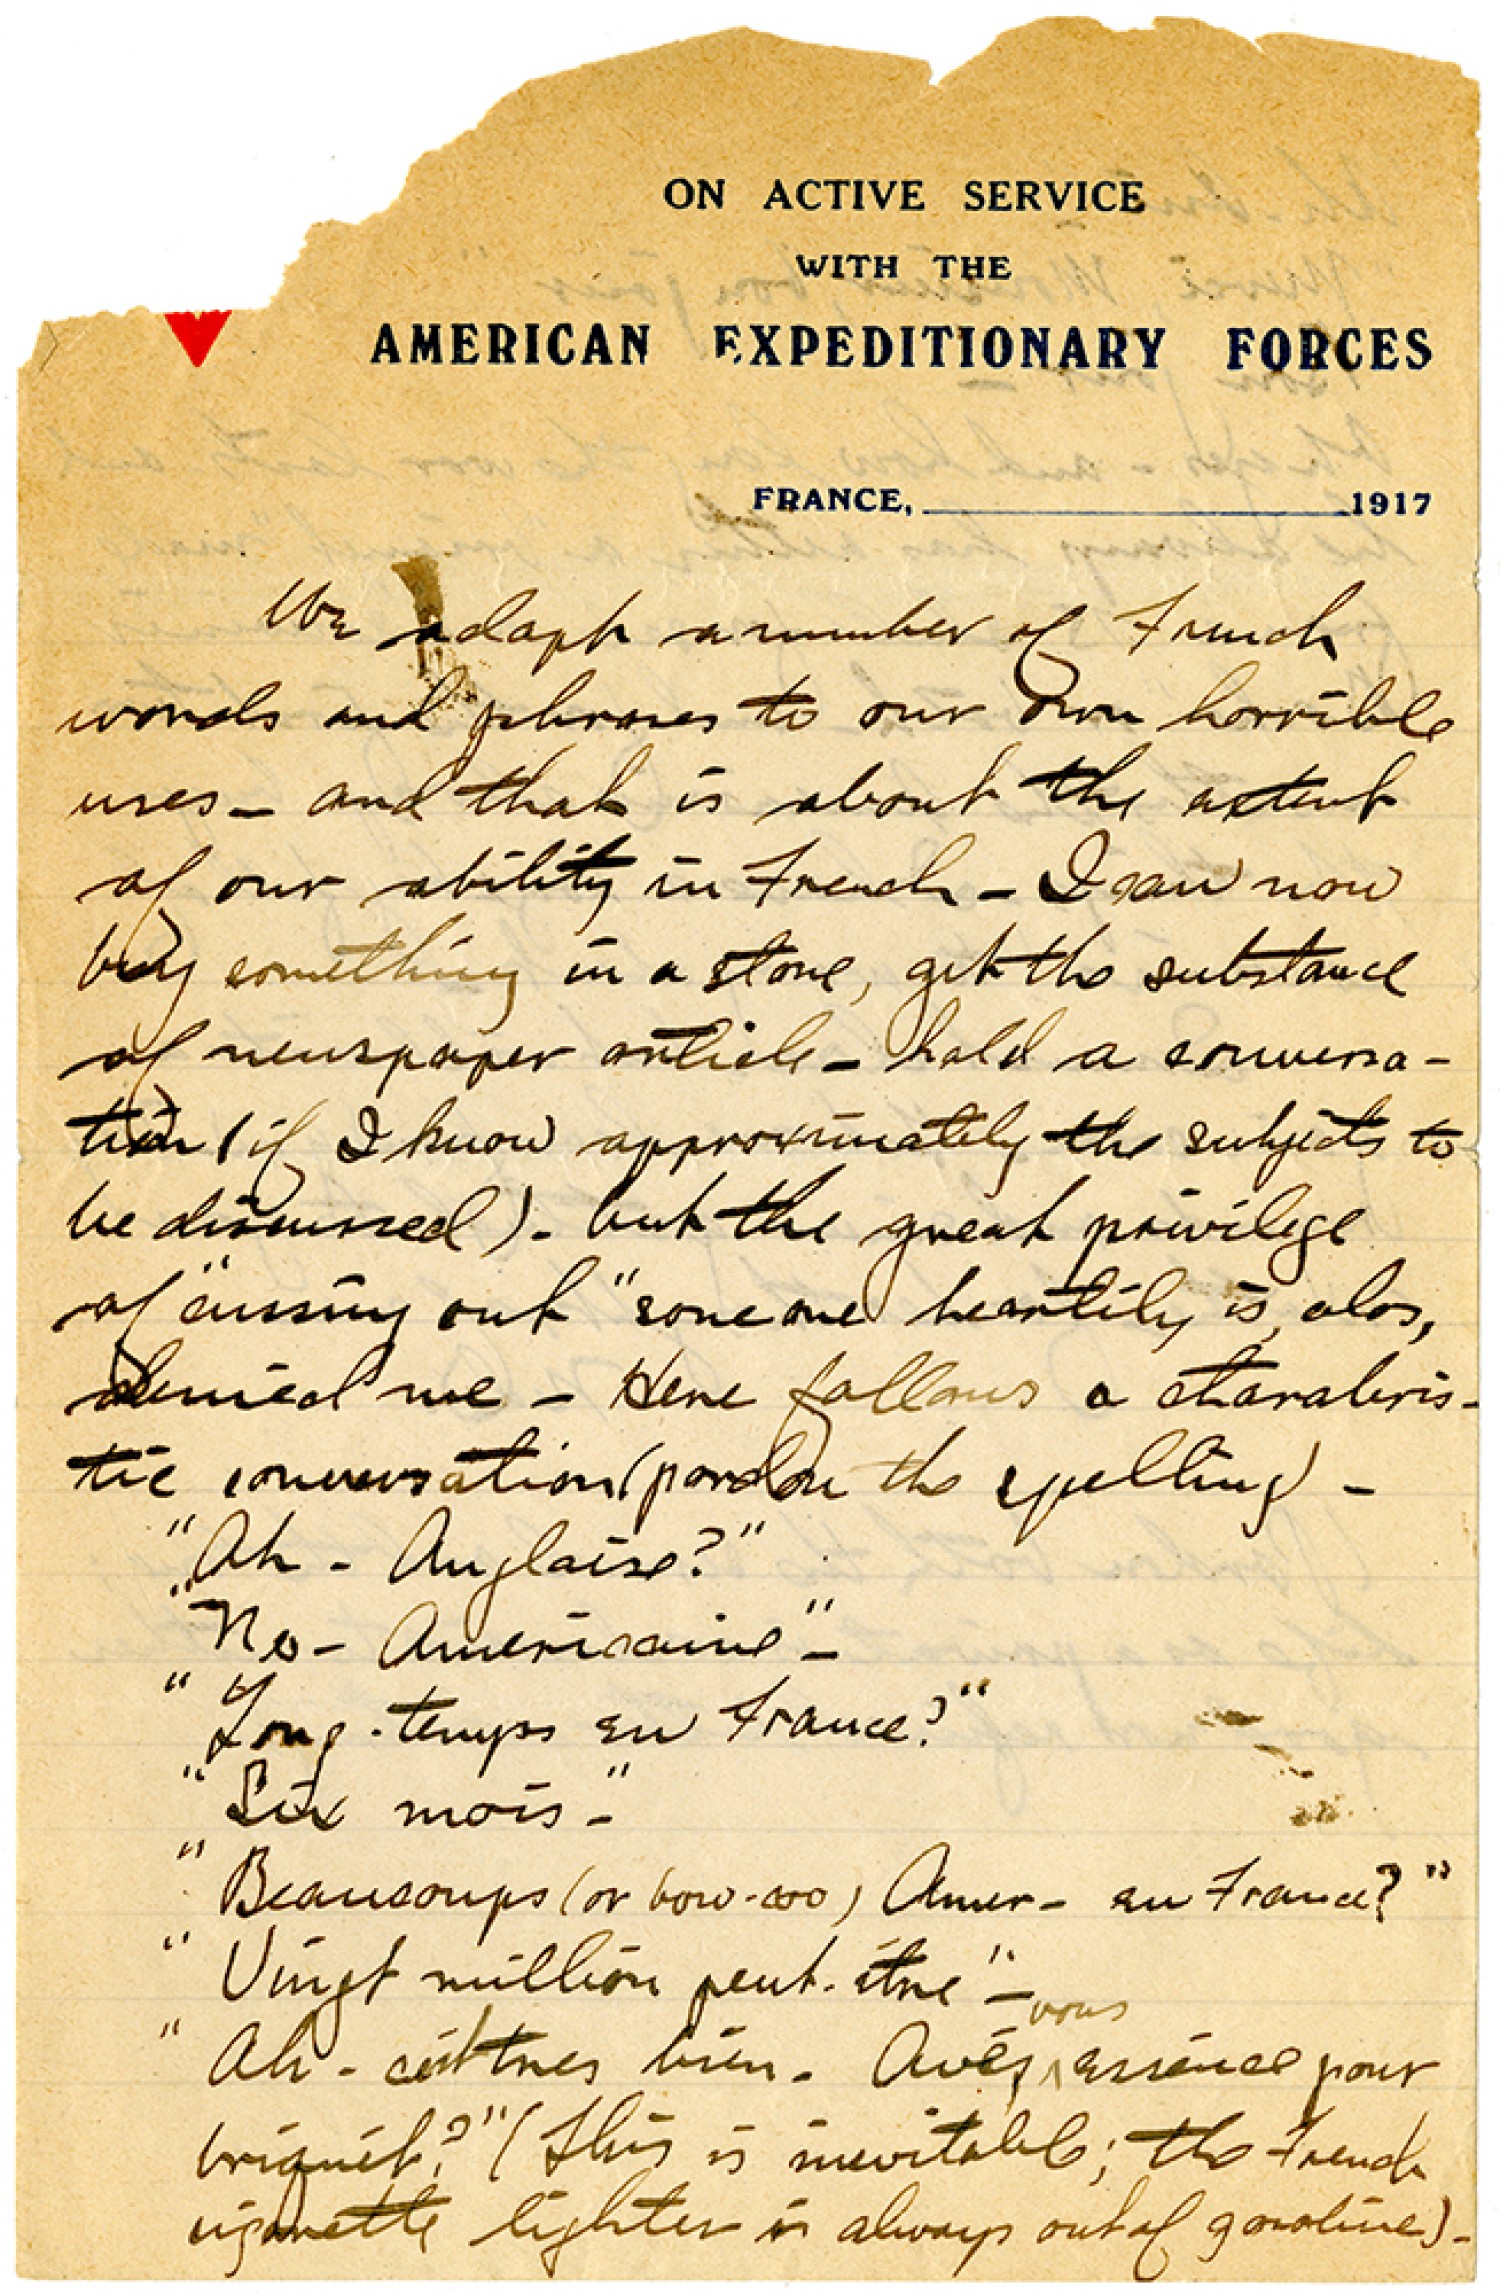 ON ACTIVE SERVICE
WITH THE
AMERICAN EXPEDITIONARY FORCES
FRANCE, 1917
We adapt a number of French
words and phrases to our own horrible
uses - and that is about the extent
of our ability in French - I can now
buy something in a store, get the substance
of newspaper article - hold a conversa-
tion (if I know approximately the subjects to
be discussed) - but the great privilege
of "cussing out" someone heartily is, alas,
denied me - Here follows a characteris-
tic conversation (pardon the spelling) -
"Ah - Anglaise?"
"No - Americaine" -
"Long-temps en France?"
"Six mois -"
"Beaucoups (or bow-coo) Amer- en France?"
"Vingt million peut-être" -
"Ah - c'est tres bien. Avéz vous essence pour
briquét?" (This is inevitable; the French
cigarette lighter is always out of gasoline) -